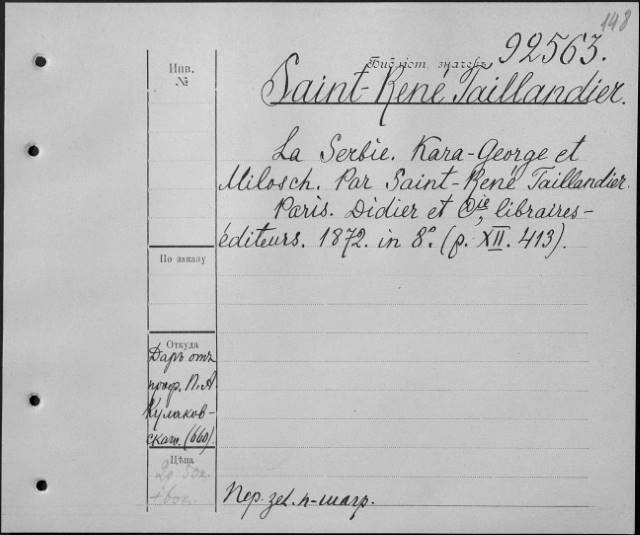 148
Библіот. значекъ 92563.
Инв.
№
Saint-René Taillandier.
La Serbie. Kara-George et
Milosch. Par Saint-René Taillandier.
Paris. Didier et Cie, libraires-
éditeurs. 1872. in 8°. (p. XII. 413).
По заказу
Откуда
Даръ отъ
проф. П. А.
Кулаков-
скаго. (660).
Цѣна
Пер. зел. п-шагр.